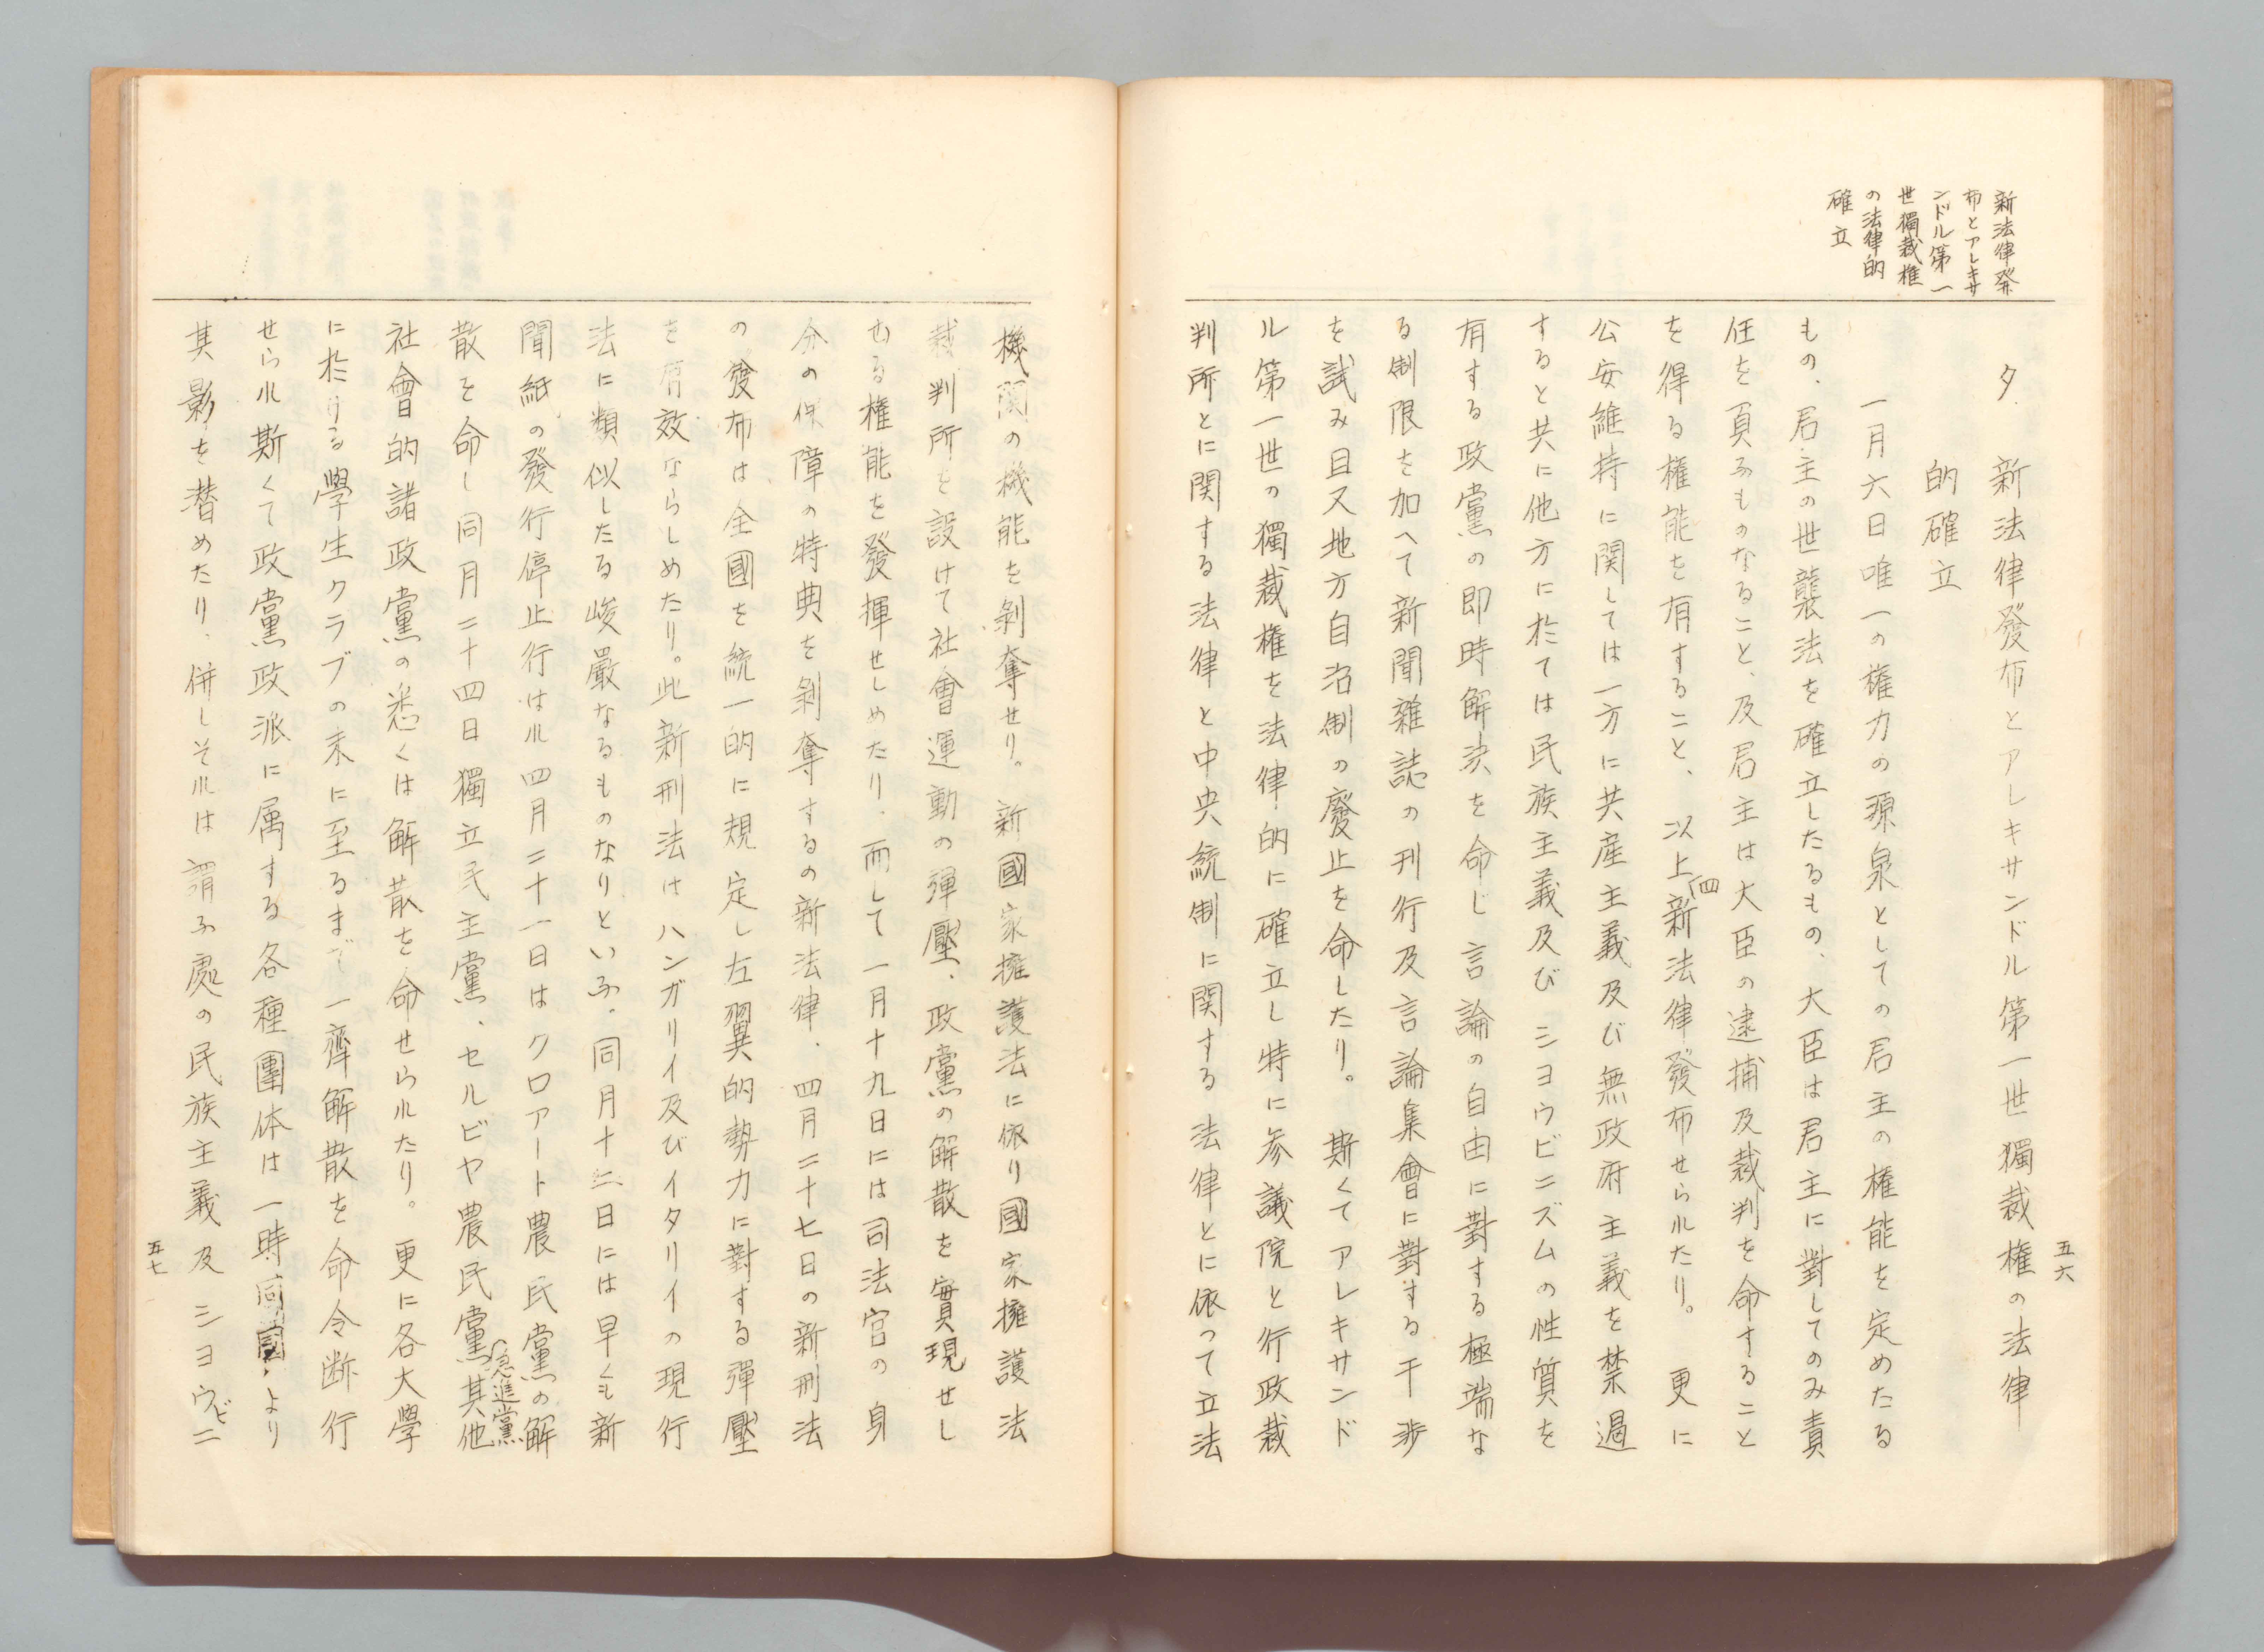 新法律発
布とアレキサ
ンドル第一
世獨裁権
の法律的
確立
タ、新法律發布とアレキサンドル第一世獨裁権の法律
的確立
一月六日唯一の権力の源泉としての君主の権能を定めたる
もの、君主の世襲法を確立したるもの、大臣は君主に對してのみ責
任を負ふものなること、及君主は大臣の逮捕及裁判を命すること
を得る権能を有すること、以上四新法律發布せられたり。更に
公安維持に関しては一方に共産主義及び無政府主義を禁遏
すると共に他方に於ては民族主義及びショウビニズムの性質を
有する政黨の即時解決を命じ言論の自由に對する極端な
る制限を加へて新聞雑誌の刊行及言論集會に對する干渉
を試み且又地方自治制の廢止を命したり。斯くてアレキサンド
ル第一世の獨裁権を法律的に確立し特に参議院と行政裁
判所とに関する法律と中央統制に関する法律とに依って立法
五六
機関の機能を剝奪せり。新國家擁護法に依り國家擁護法
裁判所を設けて社會運動の彈壓、政黨の解散を實現せし
むる権能を發揮せしめたり、而して一月十九日には司法官の身
分の保障の特典を剝奪するの新法律、四月二十七日の新刑法
の發布は全國を統一的に規定し左翼的勢力に對する彈壓
を有效ならしめたり。此新刑法はハンガリイ及びイタリイの現行
法に類似したる峻嚴なるものなりといふ。同月十二日には早くも新
聞紙の發行停止行はれ四月二十一日はクロアート農民黨の解
散を命し同月二十四日獨立民主黨、セルビヤ農民黨、急進黨其他
社會的諸政黨の悉くは解散を命せられたり。更に各大學
に於ける學生クラブの末に至るまで一齊解散を命令断行
せられ斯くて政黨政派に属する各種團体は一時同國より
其影を潜めたり、併しそれは謂ふ處の民族主義及ショウビニ
五七